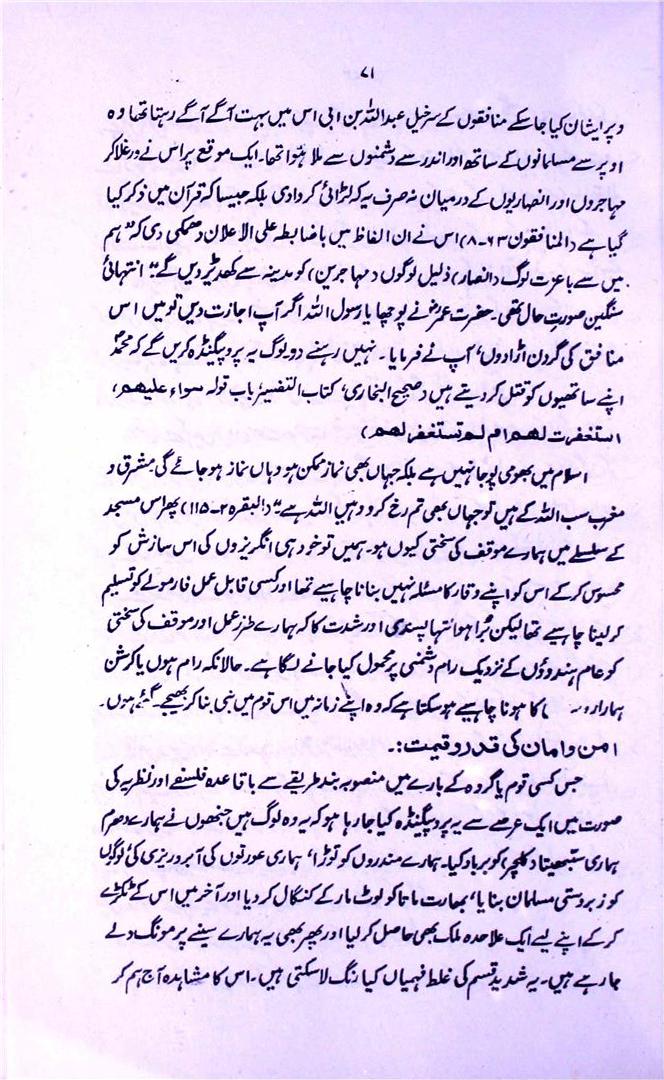 ۷۱
و پریشان کیا جا سکے منافقوں کے سرخیل عبداللہ بن ابی اس میں بہت آگے آگے رہتا تھا وہ
اوپر سے مسلمانوں کے ساتھ اور اندر سے دشمنوں سے ملا ہوا تھا۔ ایک موقع پر اس نے ورغلا کر
مہاجروں اور انصاریوں کے درمیان نہ صرف یہ کہ لڑائی کروا دی بلکہ جیسا کہ قرآن میں ذکر کیا
گیا ہے (المنافقون ۶۳-۸) اس نے ان الفاظ میں باضابطہ علی الاعلان دھمکی دی کہ "ہم
میں سے باعزت لوگ (انصار) ذلیل لوگوں (مہاجرین) کو مدینہ سے کھدیڑ دیں گے" انتہائی
سنگین صورت حال تھی۔ حضرت عمرؓ نے پوچھا یا رسول اللہ اگر آپ اجازت دیں تو میں اس
منافق کی گردن اڑا دوں، آپ نے فرمایا۔ نہیں رہنے دو۔ لوگ یہ پروپیگنڈہ کریں گے کہ محمدؐ
اپنے ساتھیوں کو قتل کر دیتے ہیں (صحیح البخاری، کتاب التفسیر، باب قولہ سواء علیھم،
استغفرت لھم ام لم تستغفر لھم)
اسلام میں بھومی پوجا نہیں ہے بلکہ جہاں بھی نماز ممکن ہو وہاں نماز ہو جائے گی مشرق و
مغرب سب اللہ کے ہیں تو جہاں بھی تم رخ کرو وہیں اللہ ہے" (البقرہ ۲-۱۱۵) پھر اس مسجد
کے سلسلے میں ہمارے موقف کی سختی کیوں ہو۔ ہمیں تو خود ہی انگریزوں کی اس سازش کو
محسوس کر کے اس کو اپنے وقار کا مسئلہ نہیں بنانا چاہیے تھا اور کسی قابل عمل فارمولے کو تسلیم
کر لینا چاہیے تھا لیکن بُرا ہو انتہا پسندی اور شدت کا کہ ہمارے طرز عمل اور موقف کی سختی
کو عام ہندوؤں کے نزدیک رام دشمنی پر محمول کیا جانے لگا ہے۔ حالانکہ رام ہوں یا کرشن
ہمارا کا ہونا چاہیے ہو سکتا ہے کہ وہ اپنے زمانہ میں اس قوم میں نبی بنا کر بھیجے گئے ہوں۔
امن و امان کی قدر و قیمت:۔
جس کسی قوم یا گروہ کے بارے میں منصوبہ بند طریقے سے باقاعدہ فلسفے اور نظریہ کی
صورت میں ایک عرصے سے یہ پروپیگنڈہ کیا جا رہا ہو کہ یہ وہ لوگ ہیں جنھوں نے ہمارے دھرم
ہماری سبھیتا (کلچر) کو برباد کیا۔ ہمارے مندروں کو توڑا، ہماری عورتوں کی آبروریزی کی، لوگوں
کو زبردستی مسلمان بنایا، بھارت ماتا کو لوٹ مار کے کنگال کر دیا اور آخر میں اس کے ٹکڑے
کر کے اپنے لیے ایک علاحدہ ملک بھی حاصل کر لیا اور پھر بھی یہ ہمارے سینے پر مونگ دلے
جا رہے ہیں۔ یہ شدید قسم کی غلط فہمیاں کیا رنگ لا سکتی ہیں۔ اس کا مشاہدہ آج ہم کر